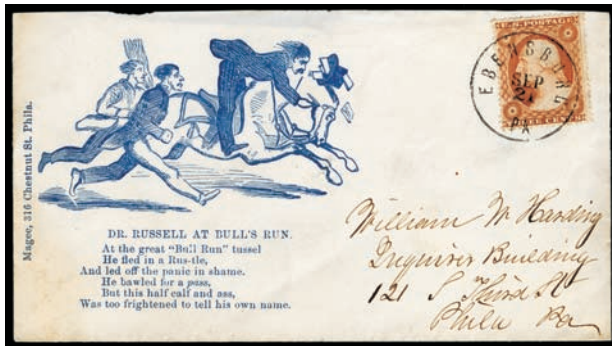 U.S. POSTAGE
EBENSBURG
SEP
21
PA
Magee, 316 Chestnut St. Phila.
DR. RUSSELL AT BULL'S RUN.
At the great "Bull Run" tussel
He fled in a Rus-tle,
And led off the panic in shame.
He bawled for a pass,
But this half calf and ass,
Was too frightened to tell his own name.
William W Harding
Inquirer Building
121 S Third St
Phila Pa